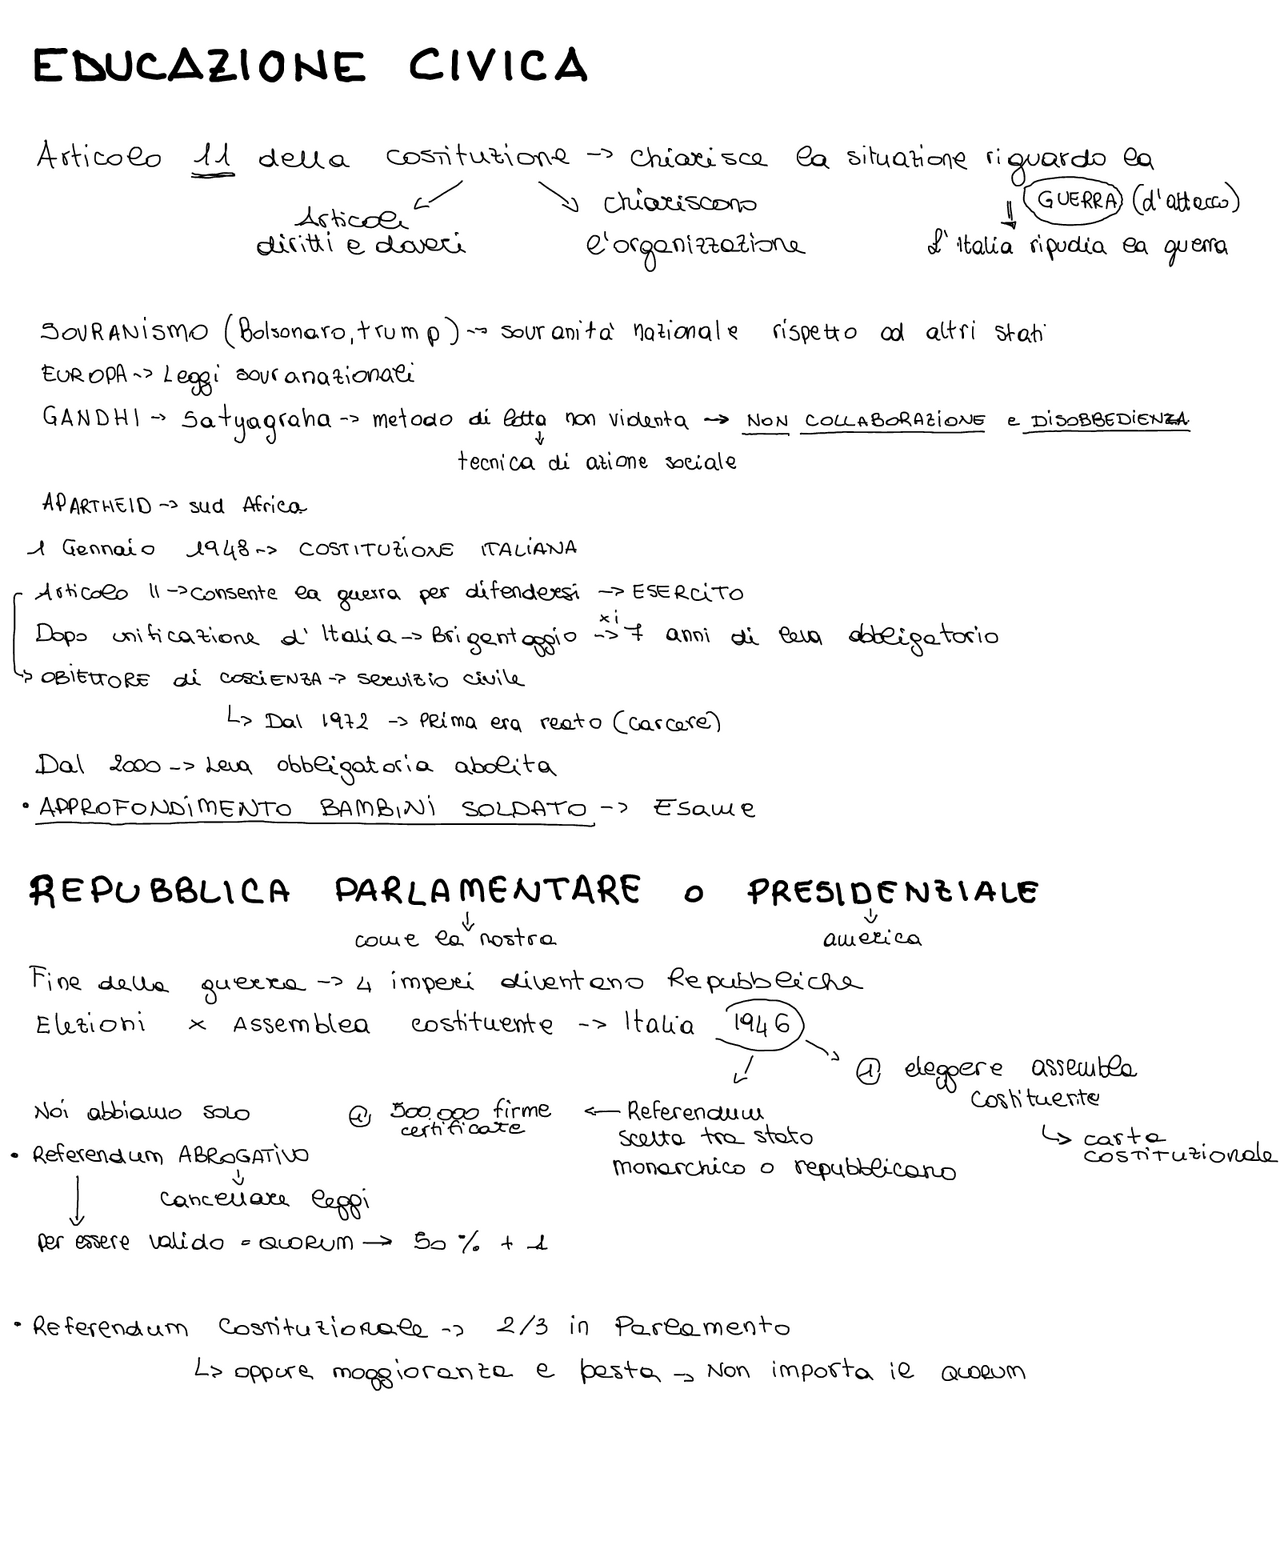 EDUCAZIONE CIVICA
Articolo 11 della costituzione -> chiarisce la situazione riguardo la
GUERRA (d'attacco)
Articoli
diritti e doveri
chiariscono
l'organizzazione
L'Italia ripudia la guerra
SOVRANISMO (Bolsonaro, trump) -> sovranità nazionale rispetto ad altri stati
EUROPA -> Leggi sovranazionali
GANDHI -> Satyagraha -> metodo di lotta non violenta -> NON COLLABORAZIONE e DISOBBEDIENZA
tecnica di azione sociale
APARTHEID -> sud Africa
1 Gennaio 1948 -> COSTITUZIONE ITALIANA
Articolo 11 -> consente la guerra per difendersi -> ESERCITO
Dopo unificazione d'Italia -> Brigantaggio -> 7 anni di leva obbligatorio
OBIETTORE di COSCIENZA -> servizio civile
↳ Dal 1972 -> Prima era reato (carcere)
Dal 2000 -> Leva obbligatoria abolita
• APPROFONDIMENTO BAMBINI SOLDATO -> Esame
REPUBBLICA PARLAMENTARE o PRESIDENZIALE
come la nostra
america
Fine della guerra -> 4 imperi diventano Repubbliche
Elezioni x Assemblea costituente -> Italia 1946
① eleggere assemblea
costituente
↳ carta
costituzionale
② 500.000 firme
certificate
<- Referendum
scelta tra stato
monarchico o repubblicano
Noi abbiamo solo
• Referendum ABROGATIVO
cancellare leggi
per essere valido = QUORUM -> 50 % + 1
• Referendum Costituzionale -> 2/3 in Parlamento
↳ oppure maggioranza e basta -> Non importa il QUORUM